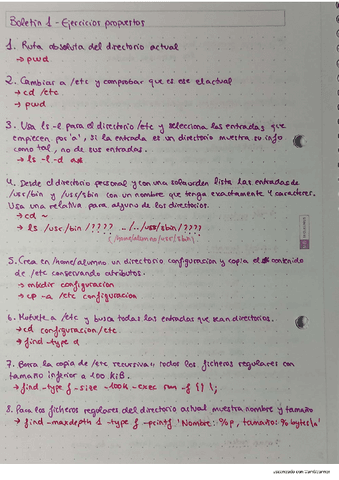 Boletín 1 - Ejercicios propuestos
1. Ruta absoluta del directorio actual
→ pwd
2. Cambiar a /etc y comprobar que es ese el actual
→ cd /etc
→ pwd
3. Usa ls -l para el directorio /etc y selecciona las entradas que
empiecen por 'a', si la entrada es un directorio muestra su info
como tal, no de sus entradas.
→ ls -l -d a*
4. Desde el directorio personal y con una sola orden lista las entradas de
/usr/bin y /usr/sbin con un nombre que tenga exactamente 4 caracteres.
Usa una relativa para alguno de los directorios.
→ cd ~
→ ls /usr/bin/???? ../../usr/sbin/????
(/home/alumno/usr/sbin)
5. Crea en /home/alumno un directorio configuracion y copia el contenido
de /etc conservando atributos.
→ mkdir configuracion
→ cp -a /etc configuracion
6. Muévete a /etc y busca todas las entradas que sean directorios.
→ cd configuracion/etc
→ find -type d
7. Borra la copia de /etc recursiva todos los ficheros regulares con
tamaño inferior a 100 KiB.
→ find -type f -size -100k -exec rm -f {} \;
8. Para los ficheros regulares del directorio actual muestra nombre y tamaño
→ find -maxdepth 1 -type f -printf 'Nombre: %p, tamaño: %s bytes\n'
Escaneado con CamScanner